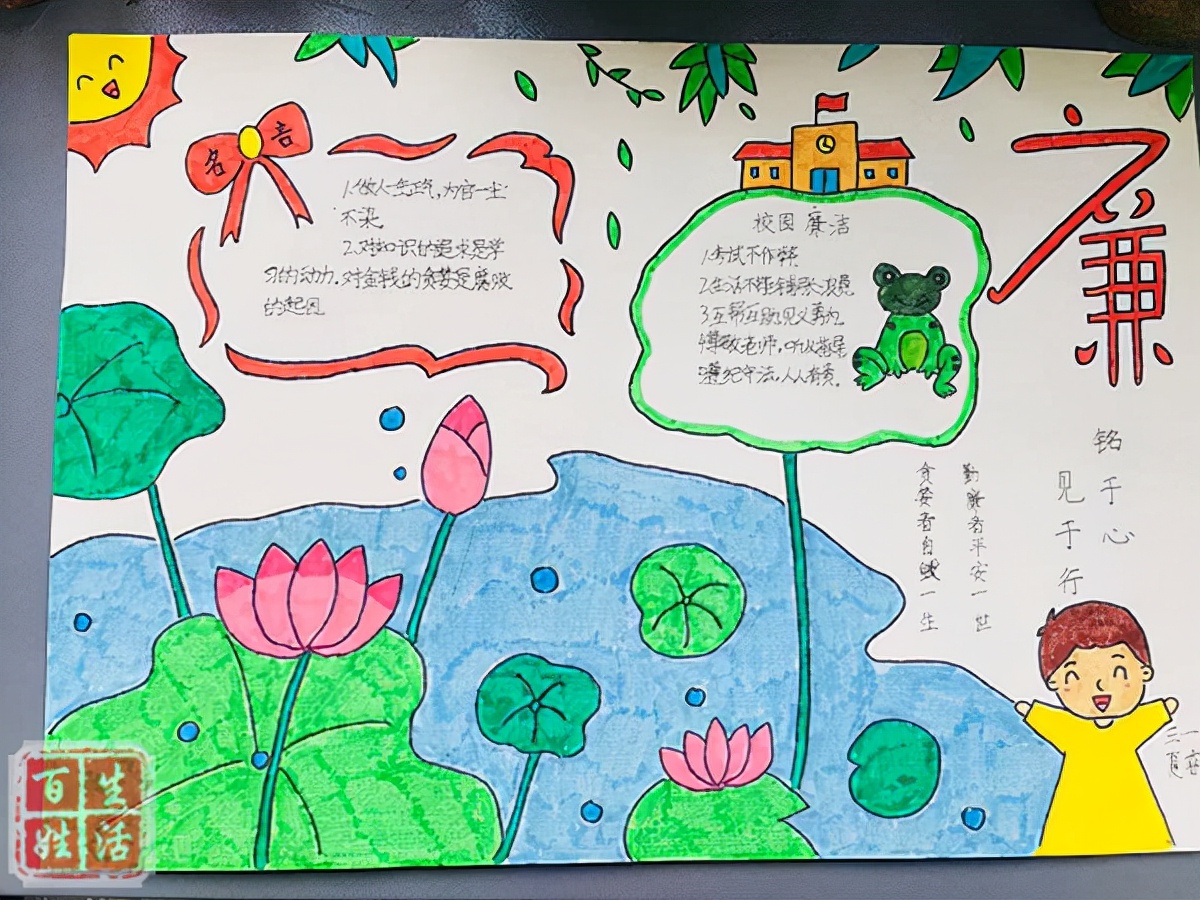 名言
1.做人一生正气,为官一尘
不染
2.对知识的追求是学
习的动力.对金钱的贪婪是腐败
的起因
校园廉洁
1.考试不作弊
2.生活不
3.互帮互助,见义勇为
4.尊敬老师,
遵纪守法,人人有责.
廉
铭于心
见于行
勤廉者平安一世
贪婪者自毁一生
百姓
生活